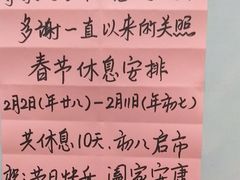 多谢一直以来的关照
春节休息安排
2月2日(年廿八)-2月11日(年初七)
共休息10天.初八启市
祝:节日快乐 阖家安康